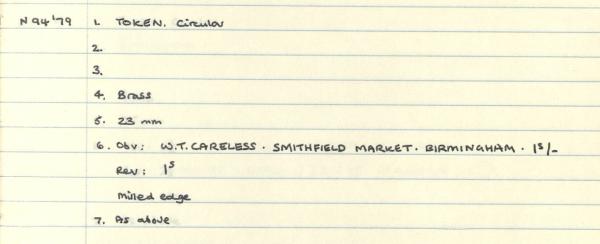 N94'79 1. TOKEN. Circular
2.
3.
4. Brass
5. 23 mm
6. Obv: W.T. CARELESS · SMITHFIELD MARKET · BIRMINGHAM · 1s/-
Rev: 1s
Milled edge
7. As above